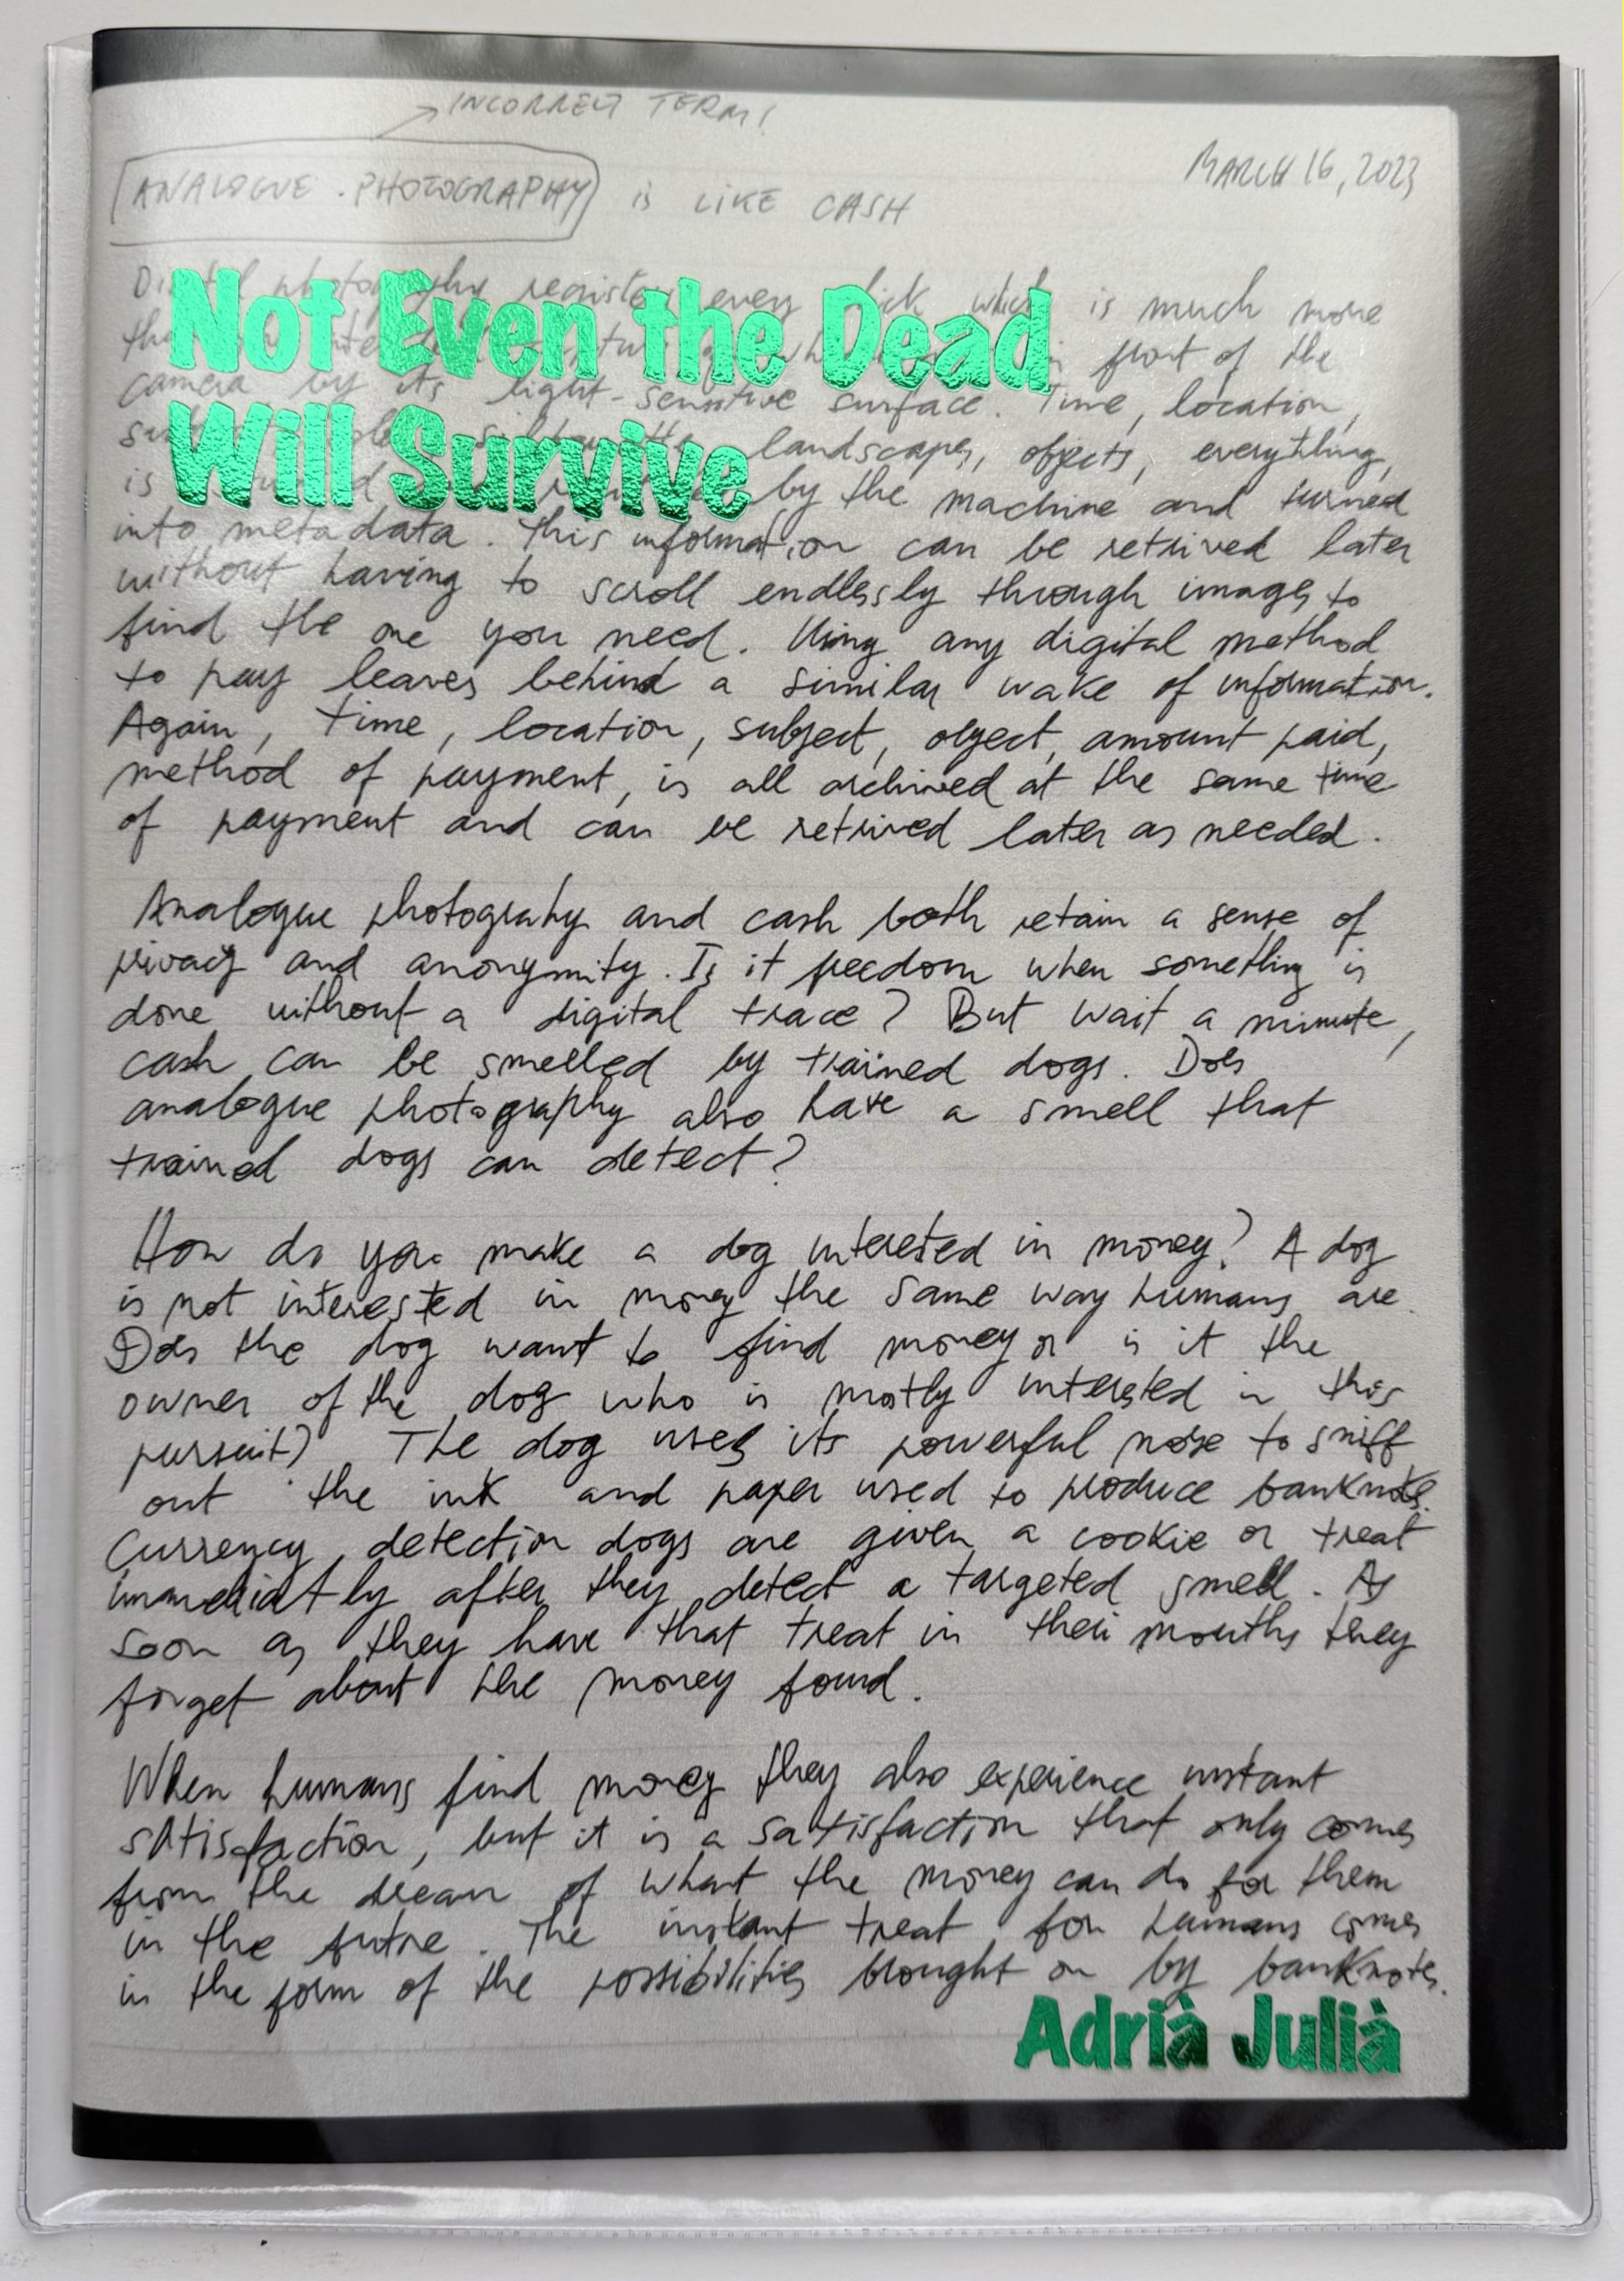 INCORRECT TERM!
MARCH 16, 2023
ANALOGUE PHOTOGRAPHY is LIKE CASH
Not Even the Dead
Will Survive
photography every which is much more
in front of the
camera by its light-sensitive surface. Time, location,
landscapes, objects, everything,
is by the machine and turned
into metadata. This information can be retrived later
without having to scroll endlessly through images to
find the one you need. Using any digital method
to pay leaves behind a similar wake of information.
Again, time, location, subject, object, amount paid,
method of payment, is all archived at the same time
of payment and can be retrived later as needed.
Analogue photograhy and cash both retain a sense of
privacy and anonymity. Is it freedom when something is
done without a digital trace? But wait a minute,
cash can be smelled by trained dogs. Does
analogue photography also have a smell that
trained dogs can detect?
How do you make a dog interested in money? A dog
is not interested in money the same way humans are.
Does the dog want to find money or is it the
owner of the dog who is mostly interested in this
pursuit? The dog uses its powerful nose to sniff
out the ink and paper used to produce banknotes.
Currency detection dogs are given a cookie or treat
immediatly after they detect a targeted smell. As
soon as they have that treat in their mouths they
forget about the money found.
When humans find money they also experience instant
satisfaction, but it is a satisfaction that only comes
from the dream of what the money can do for them
in the future. The instant treat for humans comes
in the form of the possibilities brought on by banknotes.
Adrià Julià